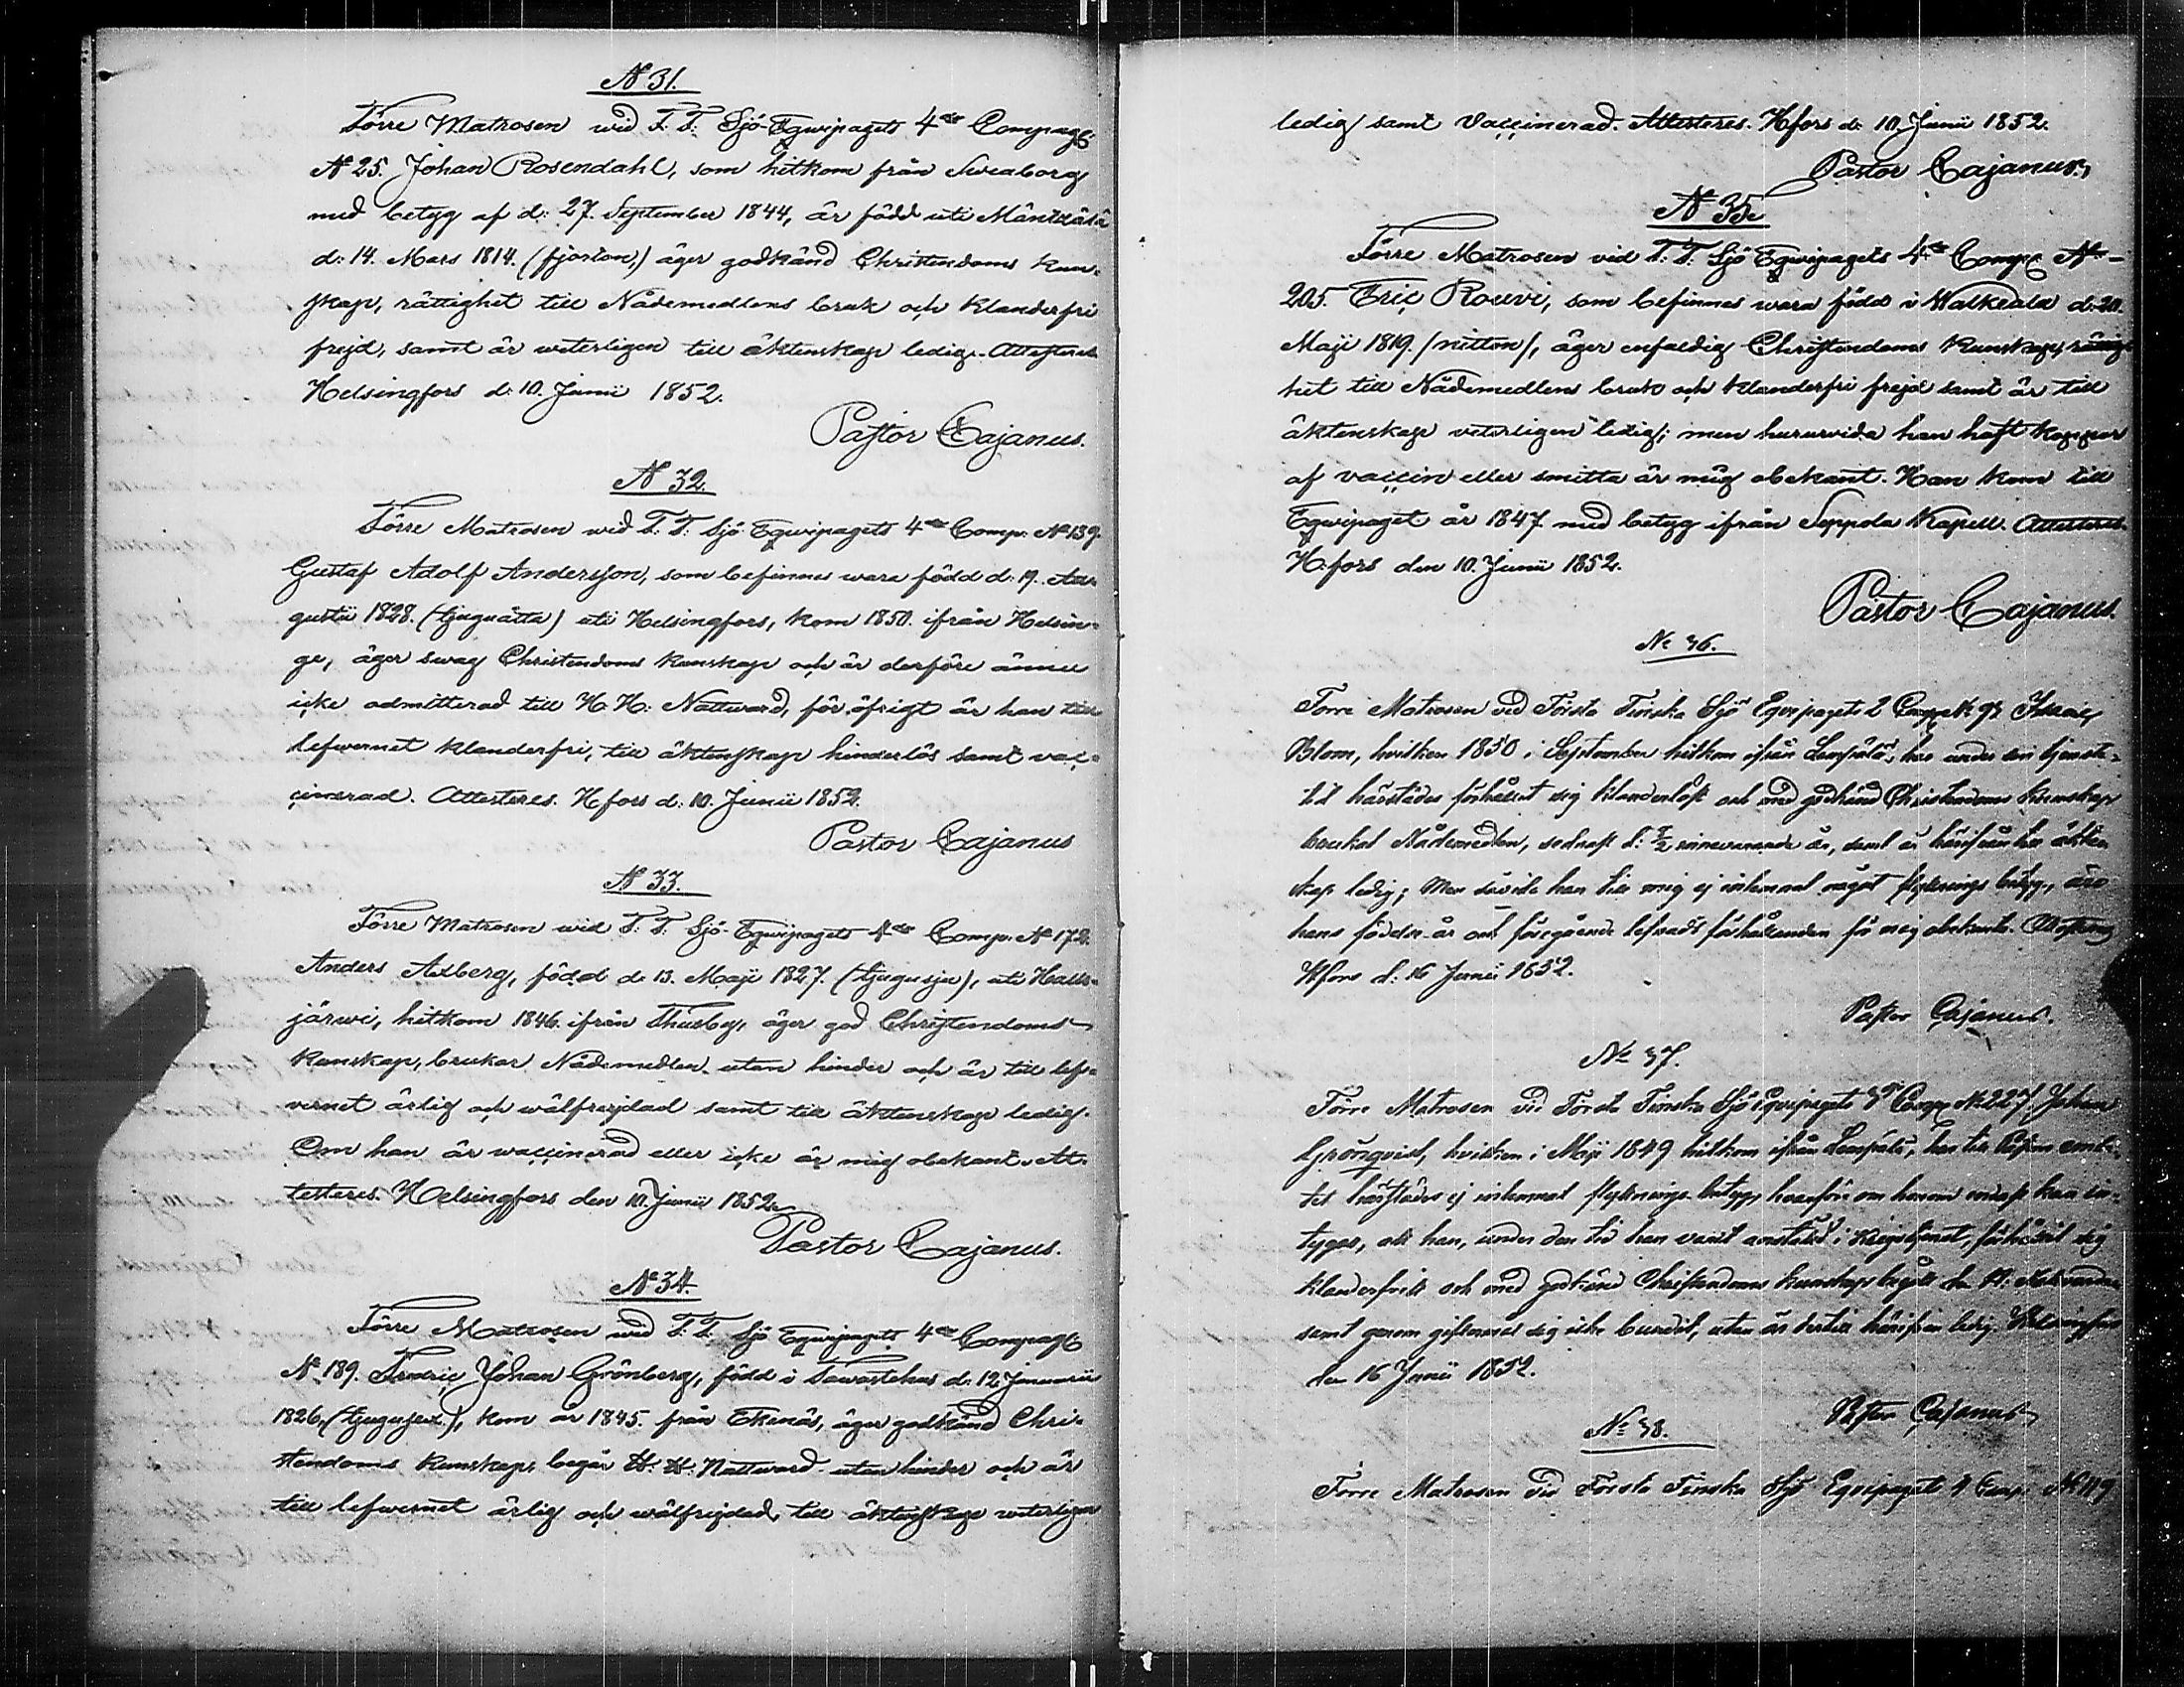 N 31.
Förre Matrosen wid F. F. Sjö-Eqwipagets 4de Compagⁱ
N 25. Johan Rosendahl, som hitkom från Sveaborg
med betyg af d: 27. September 1844, är född uti Mäntzälä
d: 14. Mars 1814. (fjorton,) äger godkänd Christendoms kun-
skap, rättighet till Nådemedlens bruk och klanderfri
frejd, samt är weterligen till äktenskap ledig. Attesteras
Helsingfors d: 10. Junii 1852.
Pastor Cajanus.
N 32.
Förre Matrosen wid F. F. Sjö Eqwipagets 4de Comp: N 139.
Gustaf Adolf Andersson, som befinnes wara född d: 19. Au-
gustii 1828. (tjuguåtta) uti Helsingfors, kom 1850. ifrån Helsin-
ge, äger swag Christendoms kunskap och är derföre ännu
icke admitterad till H. H: Nattward, för öfrigt är han till
lefwernet klanderfri, till äktenskap hinderlös samt vac-
cinerad. Attesteres. Hfors d: 10. Junii 1852.
Pastor Cajanus
N 33.
Förre Matrosen wid F. F. Sjö-Eqwipagets 4de Comp. N 172.
Anders Axberg, född d. 13. Maji 1827. (tjugusju), uti Haus-
järwi, hitkom 1846. ifrån Thusby, äger god Christendoms
kunskap, brukar Nådemedlen utan hinder och är till lef-
vernet ärlig och wälfrejdad samt till äktenskap ledig.
Om han är waccinerad eller icke är mig obekant. At-
testeres. Helsingfors den 10. Junii 1852.
Pastor Cajanus.
N 34.
Förre Matrosen wid F. F. Sjö Eqwipagets 4de Compagⁱ
N 189. Fredric Johan Grönberg, född i Tawastehus d: 12 Januarii
1826, (tjugusex), kom år 1845. från Ekenäs, äger godkänd Chri-
stendoms kunskap, begår H. H. Nattward utan hinder och är
till lefwernet ärlig och wälfrejdad, till äktenskap weterligen
ledig samt Vaccinerad. Attesteres. Hfors d: 10 Junii 1852.
Pastor Cajanus.
N 35.
Förre Matrosen vid F. F. Sjö Eqwipagets 4de Comp: N
205. Eric Rouvi, som befinnes wara född i Walkeala d: 20.
Maji 1819. (nitton), äger enfaldig Christendoms kunskap, rättig-
het till Nådemedlens bruk och klanderfri frejd samt är till
äktenskap veterligen ledig; men huruvida han haft koppor
af vaccin eller smitta är mig obekant. Han kom till
Eqwipaget år 1847 med betyg ifrån Seppola Kapell. Attesteres.
H:fors den 10. Junii 1852.
Pastor Cajanus.
No 36.
Förre Matrosen vid Första Finska Sjö Eqvipagets 2 Comp: N 98 Isaac
Blom, hvilken 1850 i September hitkom ifrån Lempälä, har under sin tjenste-
tid härstädes förhållit sig klanderlöst och med godkänd Christendoms kunskap
brukat Nådemedlen, sednast d: 8/2 innevarande år, samt är härifrån till äkten-
skap ledig; Men såvida han till mig ej inlemnat något flyttnings betyg, äro
hans födelse-år och föregående lefnads förhållanden för mig obekanta.
Hfors d: 16 Junii 1852.
Pastor Cajanus.
No 37.
Förre Matrosen vid Första Finska Sjö Eqvipagets Comp N 227 Johan
Grönqvist, hvilken i Maji 1849 hitkom ifrån Lempälä, har till embe-
tet härstädes ej inlemnat flyttnings betyg, hvarföre om honom endast kan in-
tygas, att han, under den tid han varit anstäld i Krigstjenst, förhållit sig
klanderfritt och med godkänd Christendoms kunskap begått den H. Nattvarden
samt genom giftermål sig icke bundit, utan är dertill härifrån ledig. Helsingfors
den 16 Junii 1852.
Pastor Cajanus
No 38.
Förre Matrosen vid Första Finska Sjö Eqvipagets Comp: N 119